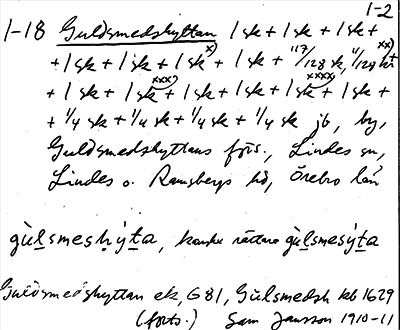 1-2
1-18 Guldsmedshyttan 1 sk + 1 sk + 1 sk +
+ 1 sk + 1 sk + 1 sk x) + 1 sk + 117/128 sk, 11/128 xx) +
+ 1 sk + 1 sk xxx) + 1 sk + 1 sk xxxx) + 1 sk +
+ 1/4 sk + 1/4 sk + 1/4 sk + 1/4 sk jb, by,
Guldsmedshyttans förs., Lindes sn,
Lindes o. Ramsbergs hd, Örebro län
gùlsmeshýta, kanske rättare gùlsmesýta
Guldsmedshyttan ek, G 81, Gùlsmedsh kb 1629
(forts.) Sam Jansson 1910-11